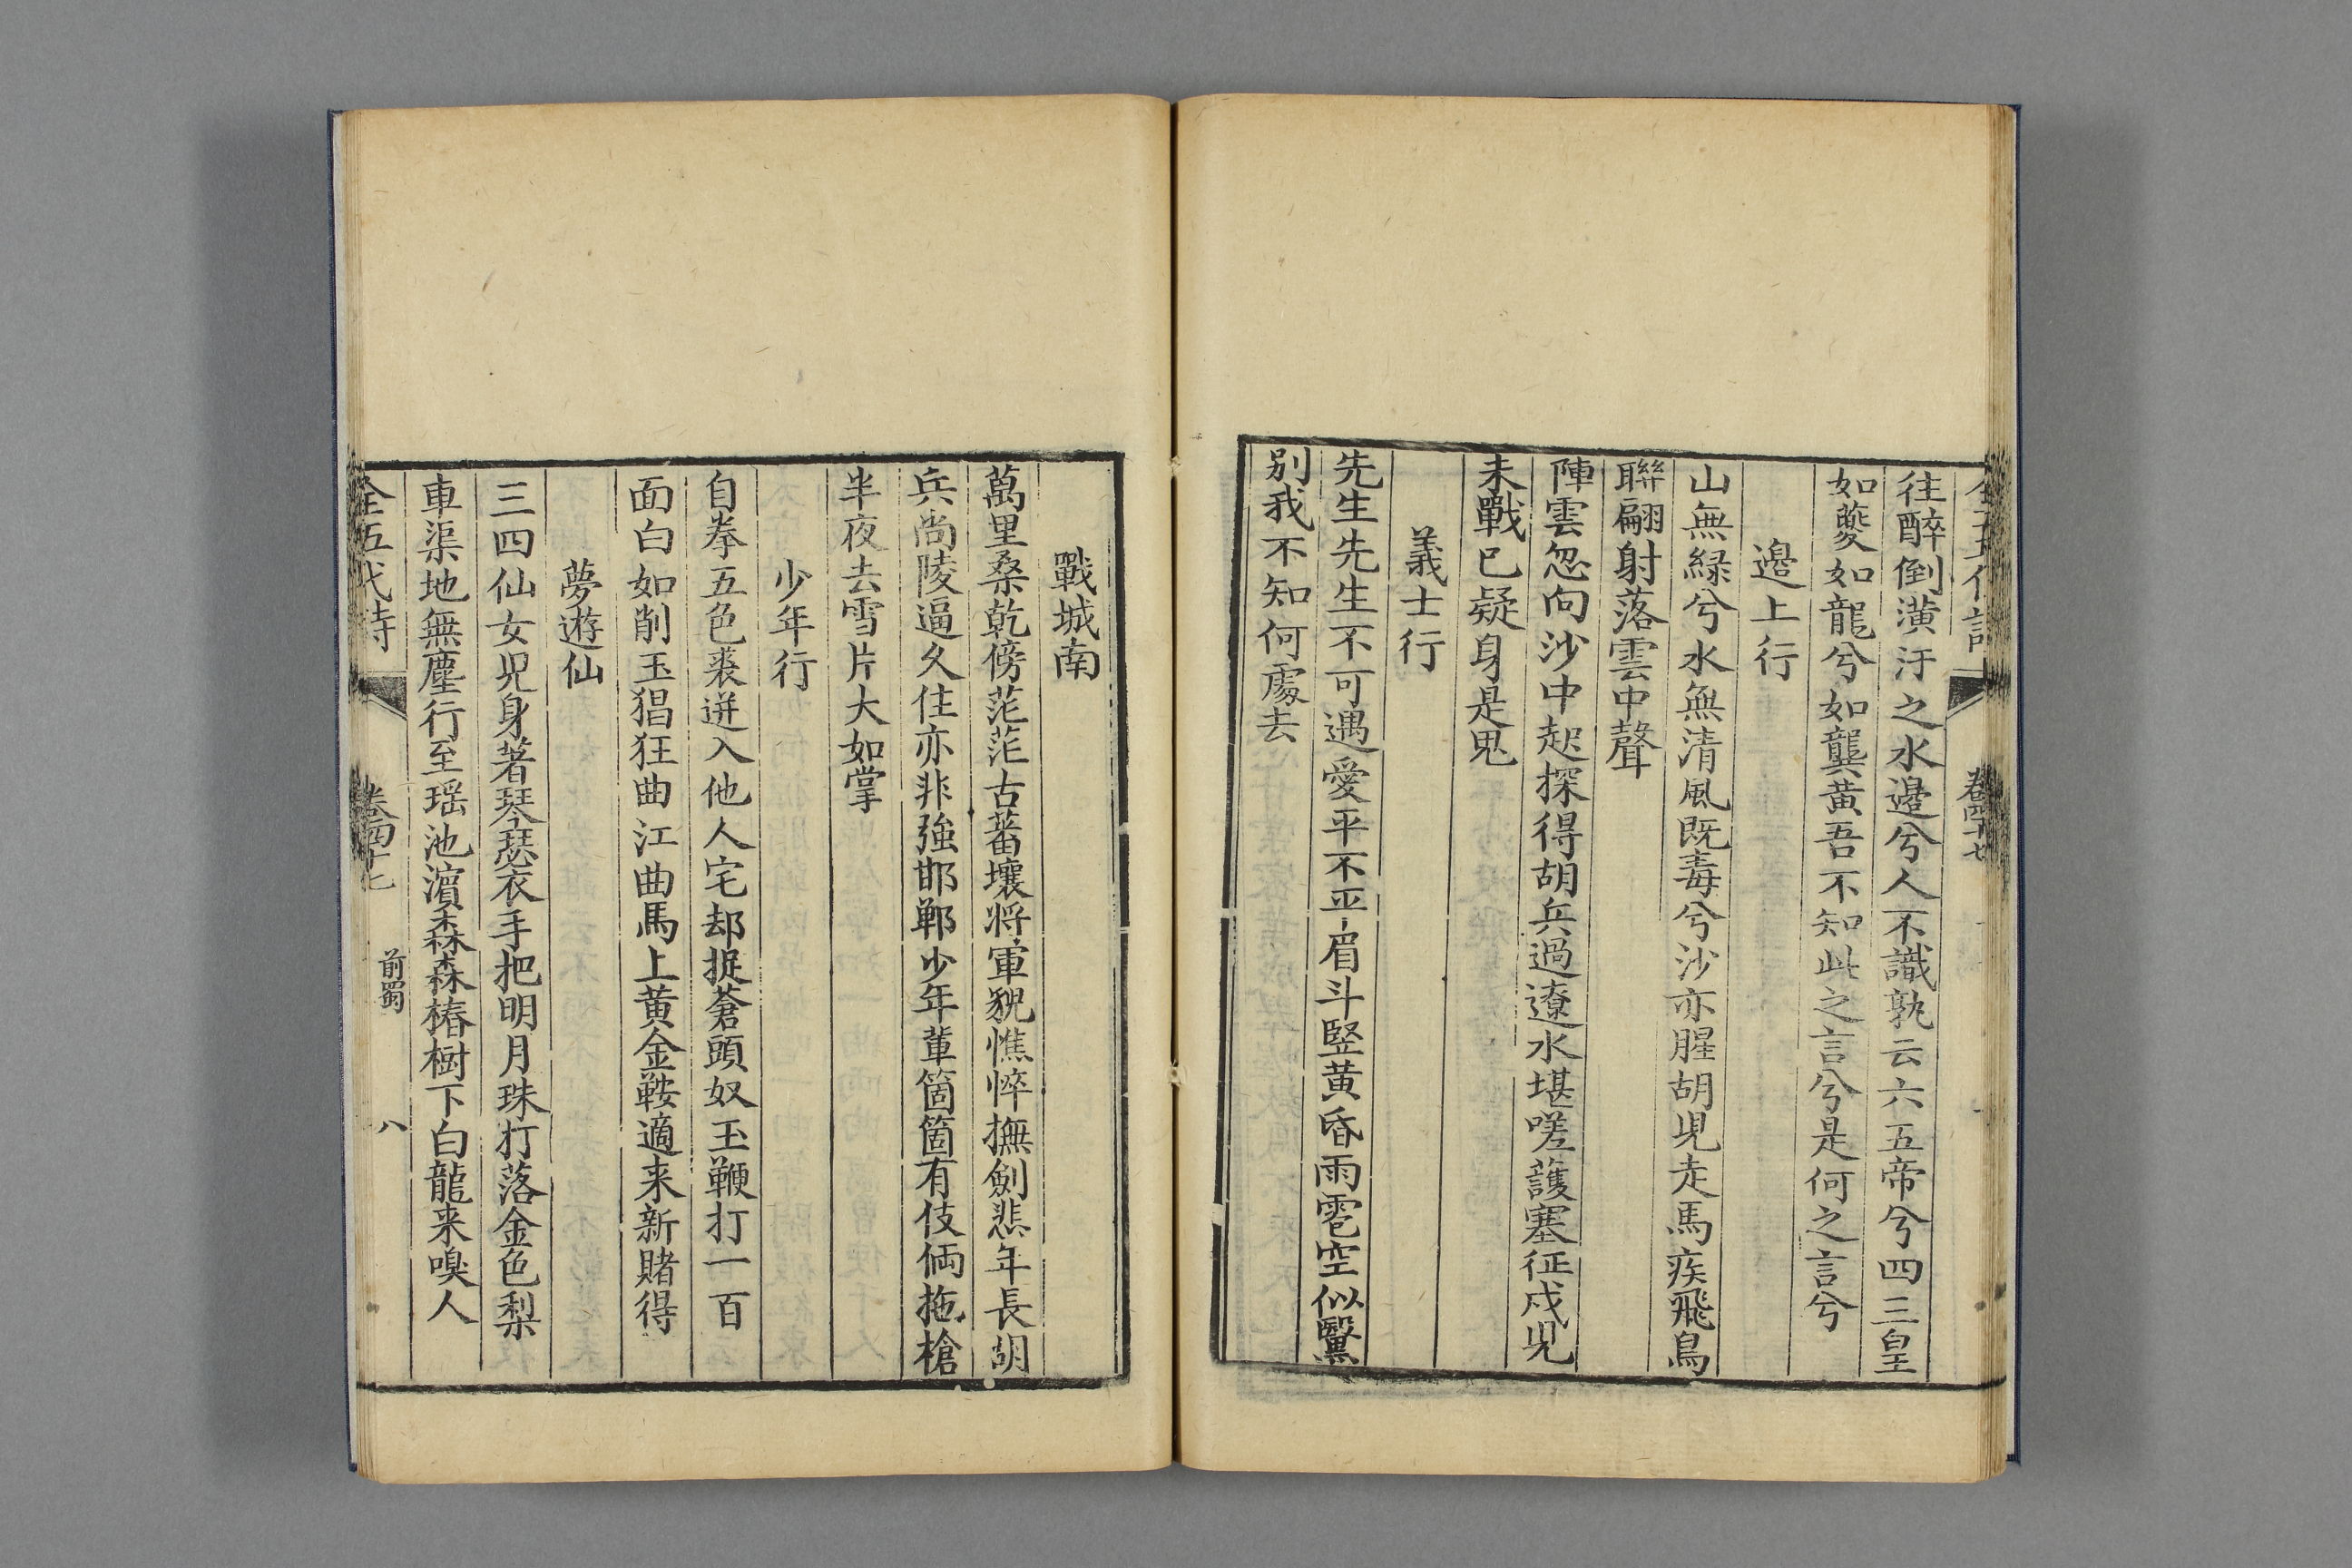 全五代詩 卷四十七
往醉倒潢汙之水邊兮人不識孰云六五帝兮四三皇
如夔如龍兮如龔黃吾不知此之言兮是何之言兮
邉上行
山無緑兮水無清風既毒兮沙亦腥胡兒走馬疾飛鳥
聯翩射落雲中聲
陣雲忽向沙中起探得胡兵過遼水堪嗟護塞征戍兒
未戰已疑身是鬼
義士行
先生先生不可遇愛平不平眉斗竪黃昏雨雹空似黳
別我不知何處去
戰城南
萬里桑乾傍茫茫古蕃壤將軍貌憔悴撫劍悲年長胡
兵尚陵逼久住亦非強邯鄲少年輩箇箇有伎倆拖槍
半夜去雪片大如掌
少年行
自拳五色裘迸入他人宅却捉蒼頭奴玉鞭打一百
面白如削玉猖狂曲江曲馬上黄金鞍適来新賭得
夢遊仙
三四仙女兒身著琴瑟衣手把明月珠打落金色梨
車渠地無塵行至瑶池濵森森椿樹下白龍来嗅人
全五代詩 卷四十七 前蜀 八